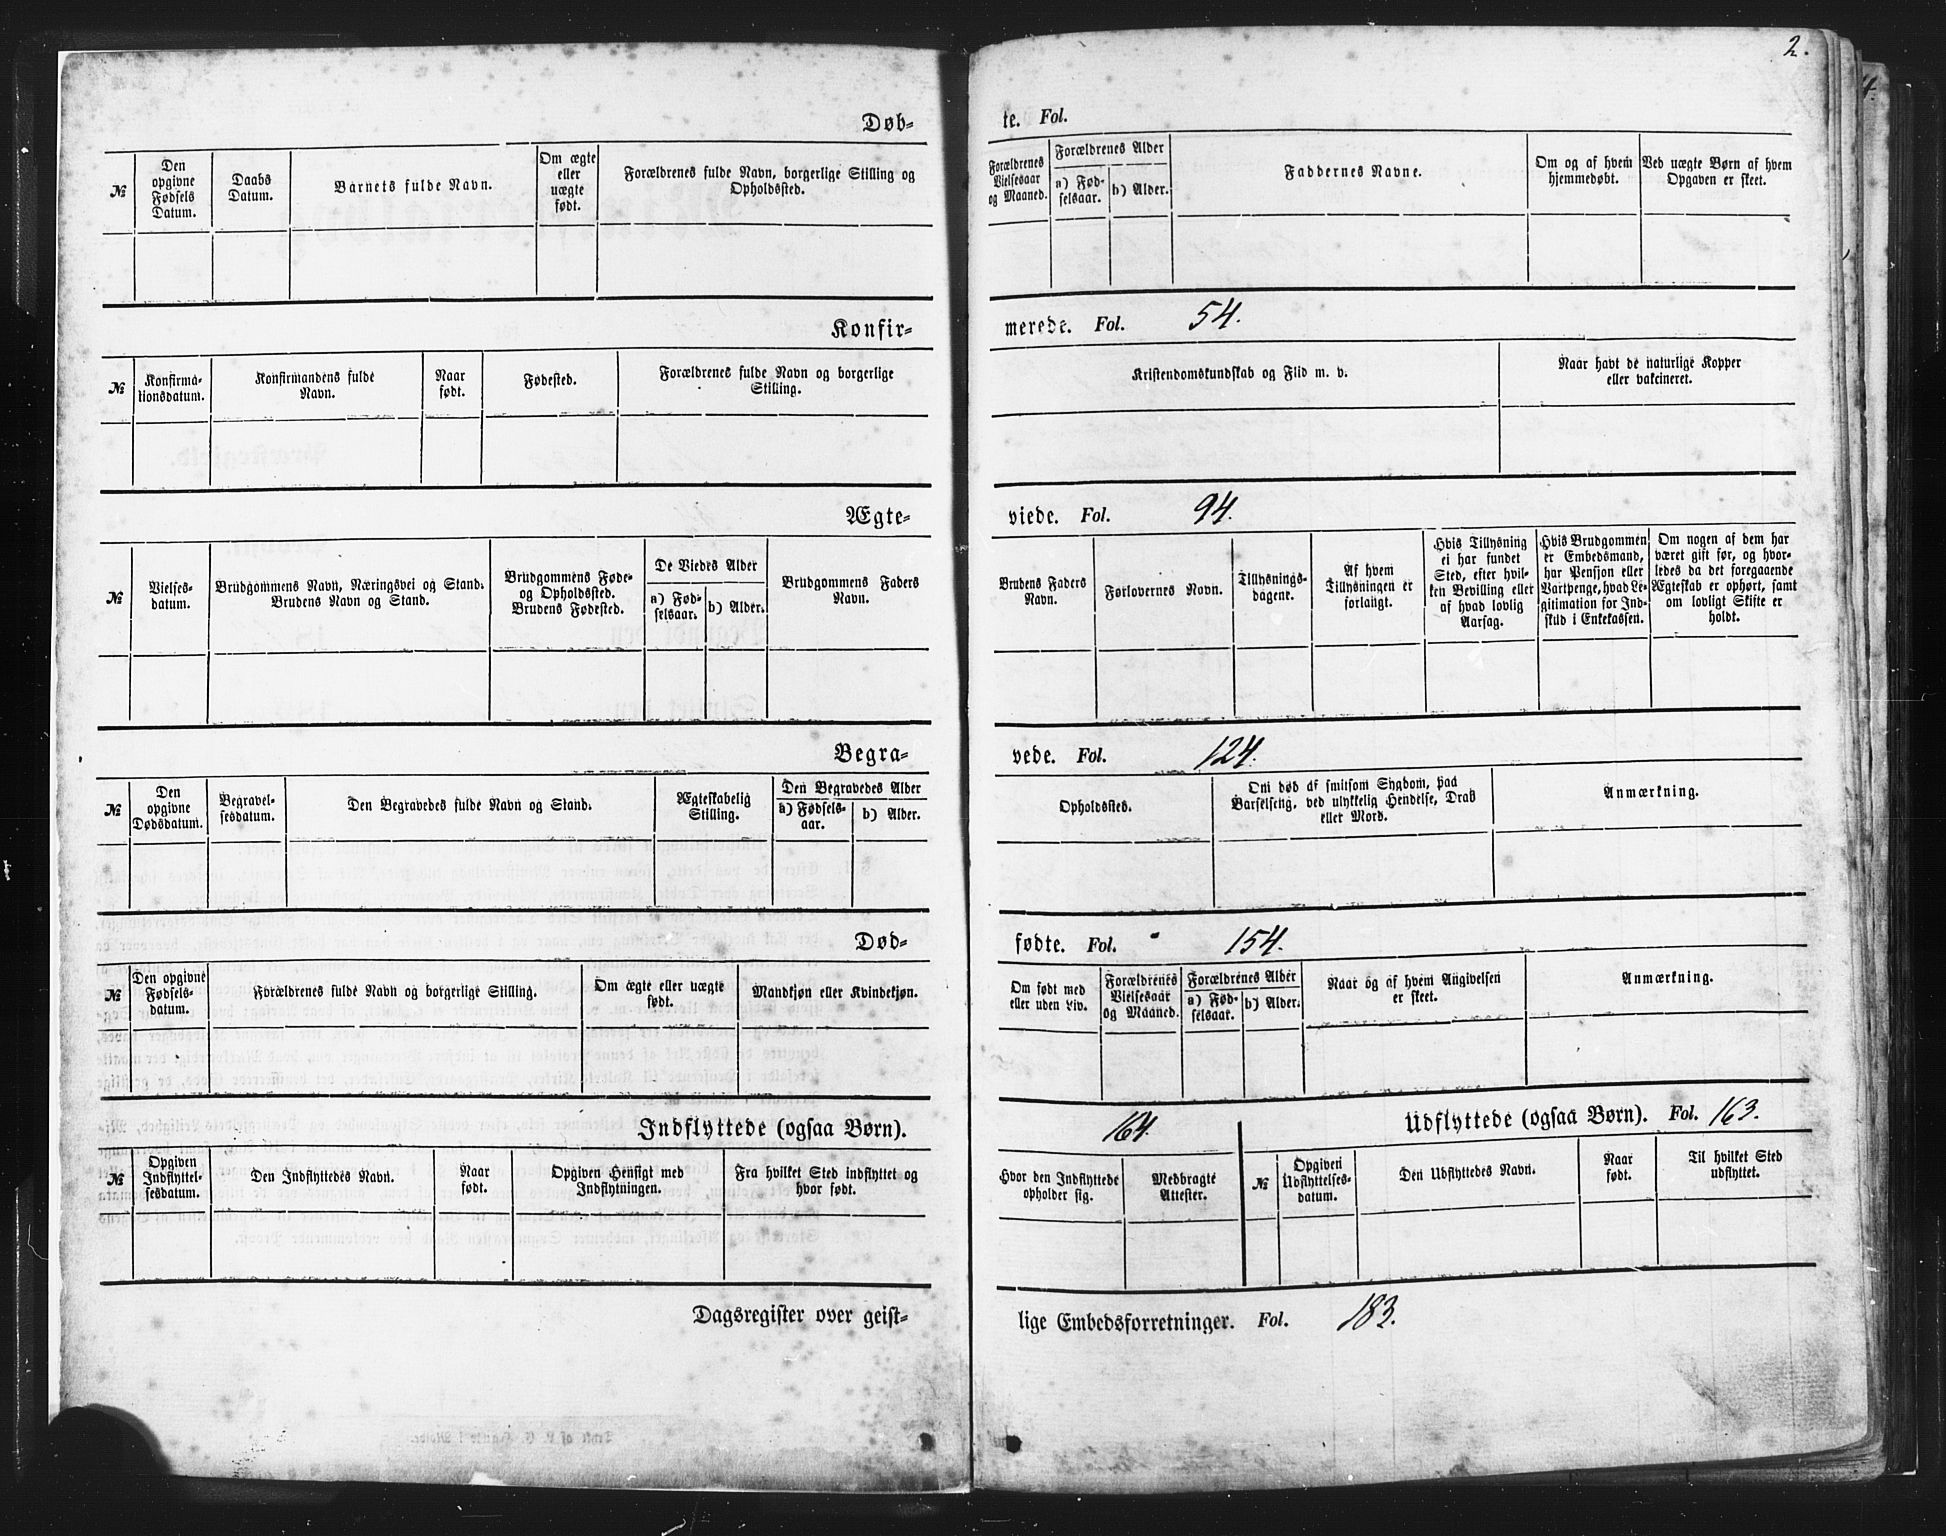 2.
Døb-
te. Fol.
№
Den opgivne Fødsels Datum.
Daabs Datum.
Barnets fulde Navn.
Om ægte eller uægte født.
Forældrenes fulde Navn, borgerlige Stilling og Opholdssted.
Forældrenes Vielsesaar og Maaned.
Forældrenes Alder
a) Fødselsaar.
b) Alder.
Faddernes Navne.
Om og af hvem hjemmedøbt.
Ved uægte Børn af hvem Opgaven er skeet.
Konfir-
merede. Fol. 54.
№
Konfirmationsdatum.
Konfirmandens fulde Navn.
Naar født.
Fødested.
Forældrenes fulde Navn og borgerlige Stilling.
Kristendomskundskab og Flid m. v.
Naar havt de naturlige Kopper eller vakcineret.
Ægte-
viede. Fol. 94.
№
Vielsesdatum.
Brudgommens Navn, Næringsvei og Stand. Brudens Navn og Stand.
Brudgommens Føde- og Opholdssted. Brudens Fødested.
De Viedes Alder
a) Fødselsaar.
b) Alder.
Brudgommens Faders Navn.
Brudens Faders Navn.
Forlovernes Navn.
Tillysningsdagene.
Af hvem Tillysningen er forlangt.
Hvis Tillysning ei har fundet Sted, efter hvilken Bevilling eller af hvad lovlig Aarsag.
Hvis Brudgommen er Embedsmand, har Pension eller Vartpenge, hvad Legitimation for Indskud i Enkekassen.
Om nogen af dem har været gift før, og hvorledes da det foregaaende Ægteskab er ophørt, samt om lovligt Skifte er holdt.
Begra-
vede. Fol. 124.
№
Den opgivne Dødsdatum.
Begravelsesdatum.
Den Begravedes fulde Navn og Stand.
Ægteskabelig Stilling.
Den Begravedes Alder
a) Fødselsaar.
b) Alder.
Opholdssted.
Om død af smitsom Sygdom, paa Barselseng, ved ulykkelig Hendelse, Drab eller Mord.
Anmærkning.
Død-
fødte. Fol. 154.
№
Den opgivne Fødselsdatum.
Forældrenes fulde Navn og borgerlige Stilling.
Om ægte eller uægte født.
Mandkjøn eller Kvindekjøn.
Om født med eller uden Liv.
Forældrenes Vielsesaar og Maaned.
Forældrenes Alder
a) Fødselsaar.
b) Alder.
Naar og af hvem Angivelsen er skeet.
Anmærkning.
Indflyttede (ogsaa Børn). 164.
№
Opgiven Indflyttelsesdatum.
Den Indflyttedes Navn.
Naar født.
Opgiven Hensigt med Indflytningen.
Fra hvilket Sted indflyttet og hvor født.
Hvor den Indflyttede opholder sig.
Medbragte Attester.
Udflyttede (ogsaa Børn). Fol. 163.
№
Opgiven Udflyttelsesdatum.
Den Udflyttedes Navn.
Naar født.
Til hvilket Sted udflyttet.
Dagsregister over geist-
lige Embedsforretninger. Fol. 183.